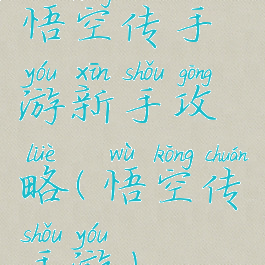 悟空传手
yóu xīn shǒu gōng
游新手攻
lüè wù kōng chuán
略(悟空传
shǒu yóu
手游)